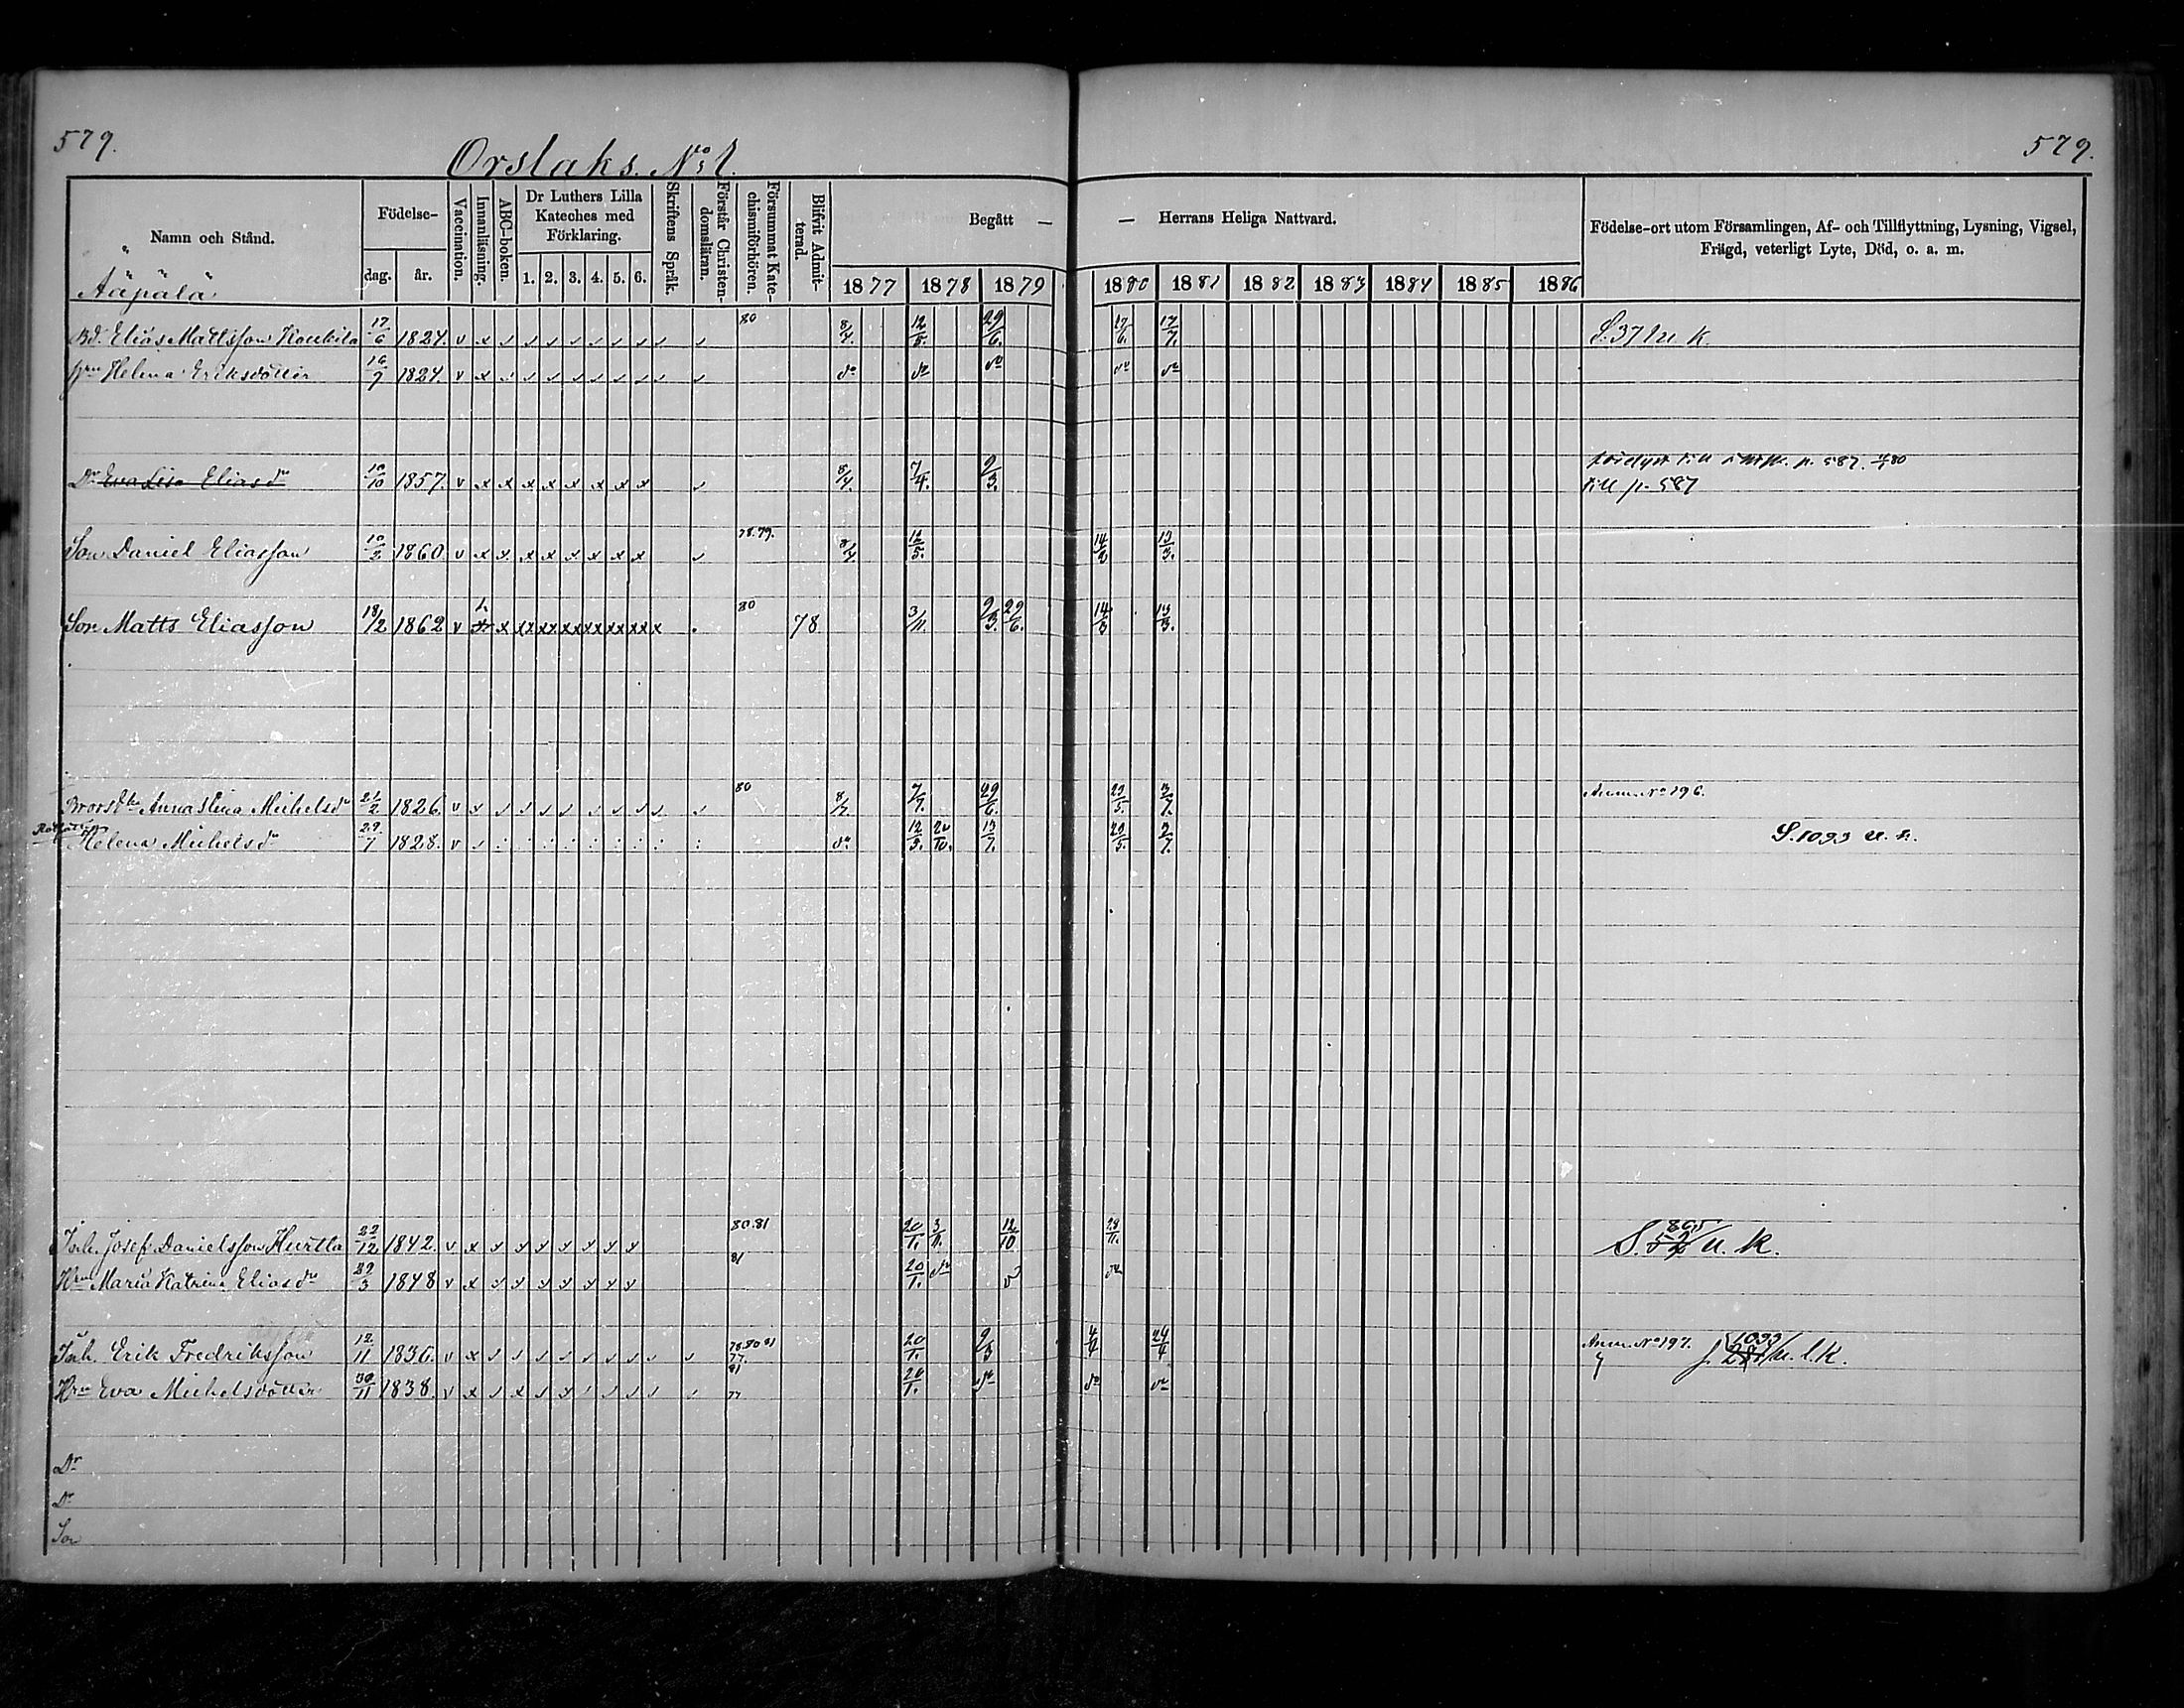 579.
579.
Orslaks. No 1.
Namn och Stånd.
Ääpälä
Födelse-
dag.
år.
Vaccination.
Innanläsning.
ABC-boken.
Dr Luthers Lilla
Kateches med
Förklaring.
1. 2. 3. 4. 5. 6.
Skriftens Språk.
Förstår Christen-
domsläran.
Försummat Kate-
chismiförhören.
Blifvit Admit-
terad.
Begått — — Herrans Heliga Nattvard.
1877 1878 1879 1880 1881 1882 1883 1884 1885 1886
Födelse-ort utom Församlingen, Af- och Tillflyttning, Lysning, Vigsel,
Frägd, veterligt Lyte, Död, o. a. m.
Bd. Elias Mattsson 17/6 1824. v x 80 8/4. 12/5. 29/6. 17/6. 17/7.
Hru Helena Eriksdotter 16/9 1824. v x do do do do do
Dr Eva Lisa Eliasdr 10/10 1857. v x x x x x x x x 8/4. 7/4. 9/3. till p. 587
Son Daniel Eliasson 10/3 1860 v x x x x x x x x 78.79. 8/4 12/5. 14/3 13/3.
Son Matts Eliasson 18/2 1862 v x x xx xx xx xx xx xx x 80 78 3/11. 9/3. 29/6. 14/3 13/3.
Anna Stina Michelsdr 21/2 1826. v 80 8/4. 7/7. 29/6. 29/5. 3/7. Anm. No 196.
Helena Michelsdr 29/7 1828. v do 12/3. 20/10. 13/7. 29/5. 3/7. S. 1093 u. k.
Inh. Josef Danielsson Hurtta 22/12 1842. v x x x x x x x x 80.81 20/1. 3/11. 12/10 28/11. S. 805 u. k.
Hru Maria Katrina Eliasdr 29/3 1848 v x x x x x x x x 81 20/1. do do do
Inh. Erik Fredriksson 12/11 1836. v x 20/1. 9/3 4/4 24/4 Anm. No 197. 1093 u. k.
Hru Eva Michelsdotter 30/11 1838. v x 77 20/1. do do do
Dr
Dr
Son